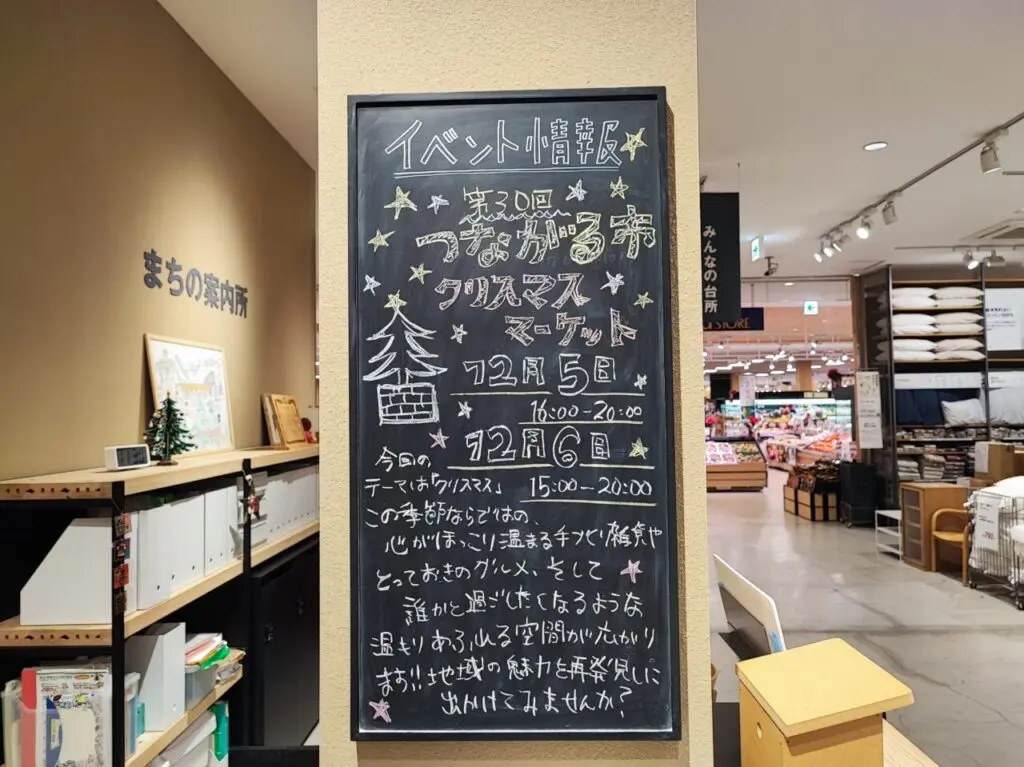 イベント情報
第30回
つながる市
クリスマス
マーケット
12月5日
16:00-20:00
12月6日
15:00-20:00
今回の
テーマは「クリスマス」
この季節ならではの、
心がほっこり温まる手づくり雑貨や
とっておきのグルメ、そして
誰かと過ごしたくなるような
温もりあふれる空間が広がり
ます!!地域の魅力を再発見しに
出かけてみませんか?
まちの案内所
みんなの台所
STORE